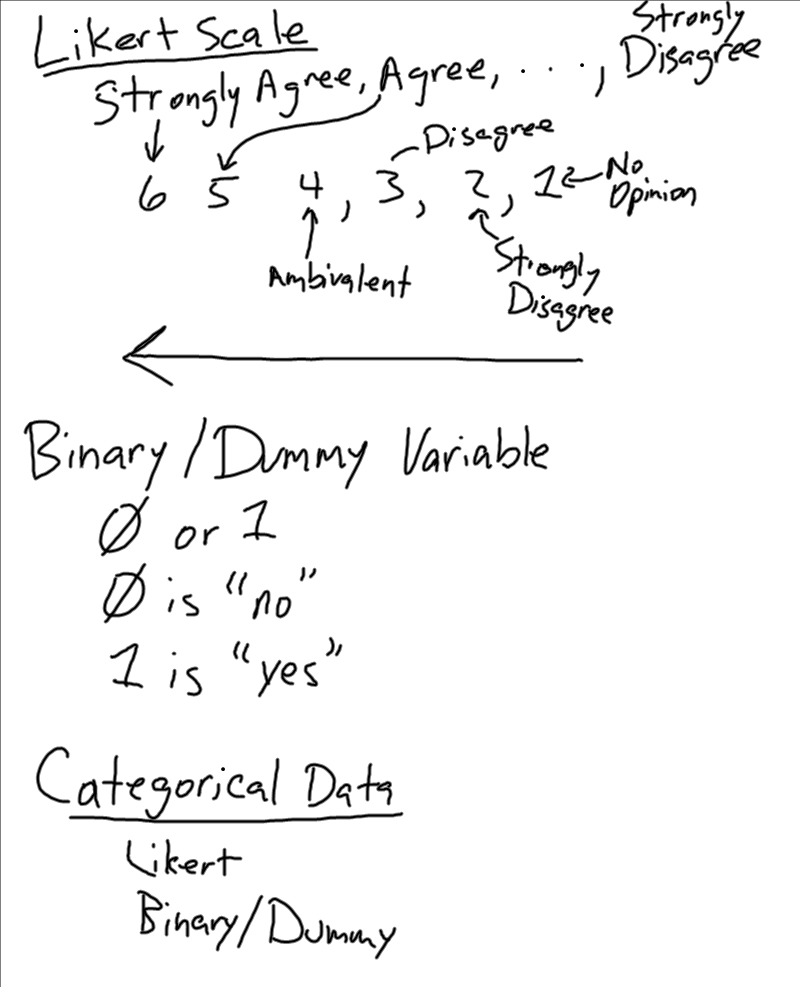 Likert Scale
Strongly Agree, Agree, . . ., Strongly Disagree
Disagree
6 5 4, 3, 2, 1
No Opinion
Ambivalent
Strongly Disagree
Binary/Dummy Variable
Ø or 1
Ø is "no"
1 is "yes"
Categorical Data
Likert
Binary/Dummy